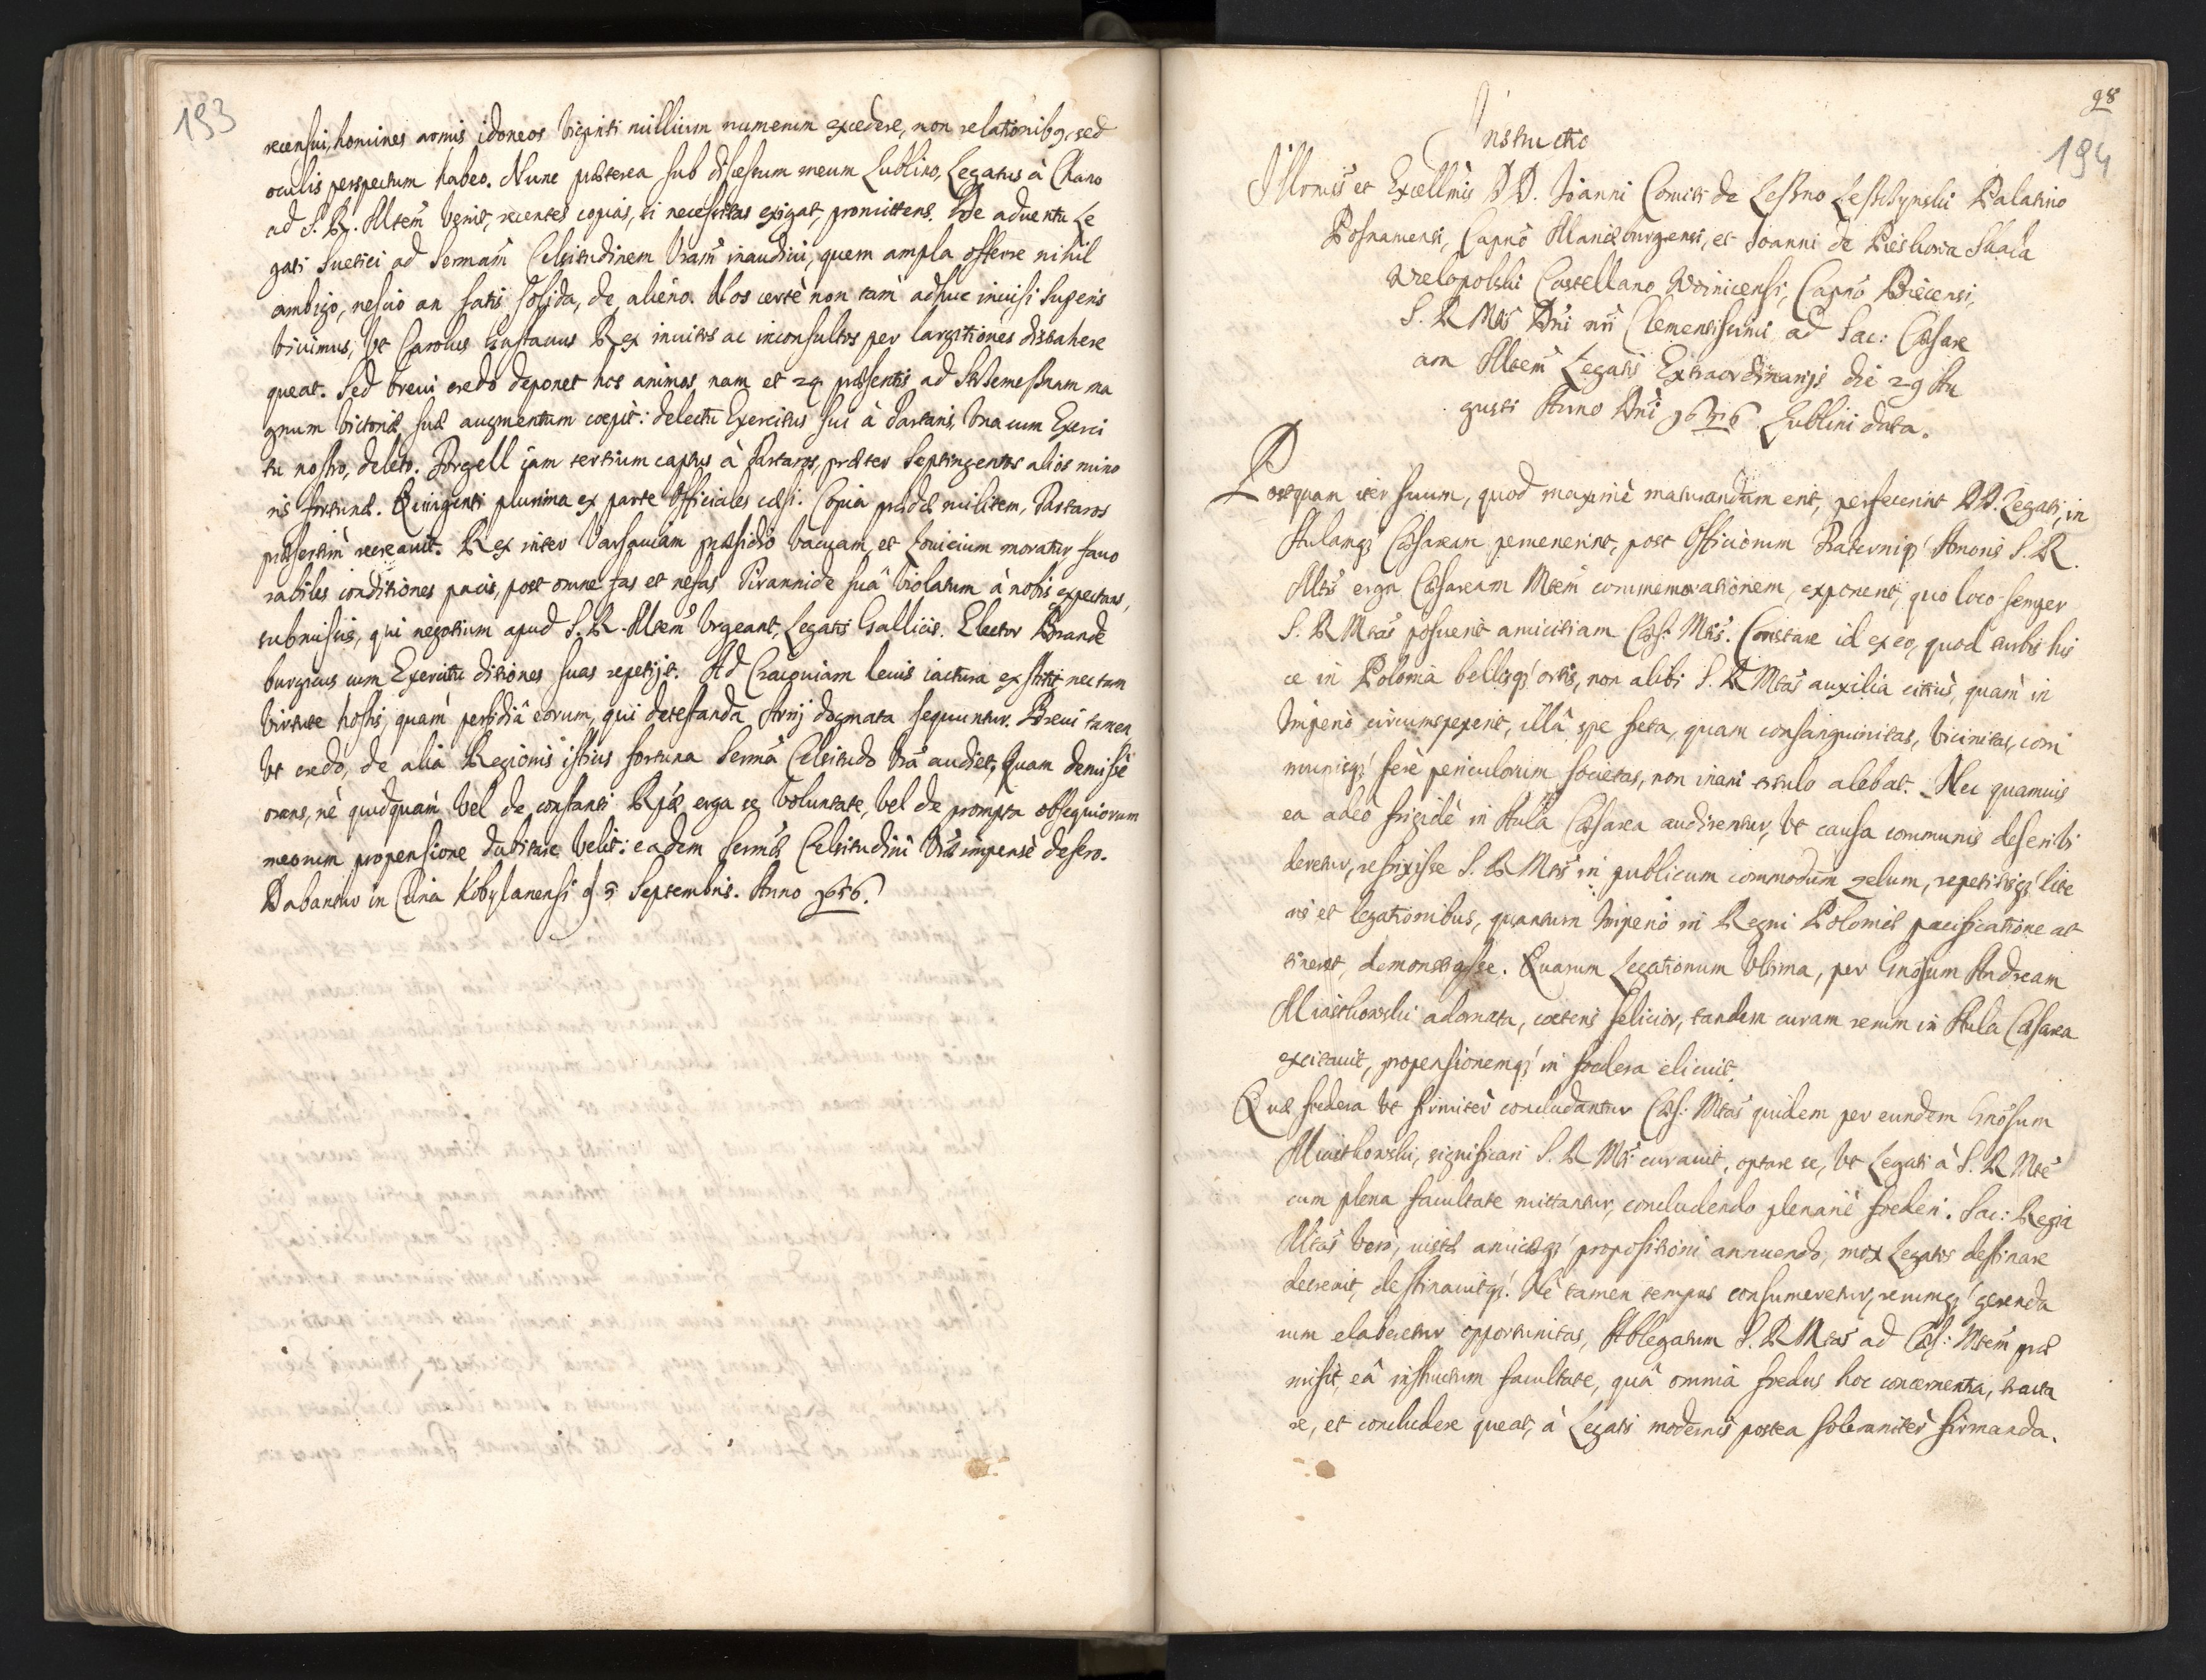 193
recensui, homines armis idoneos viginti millium numerum excedere, non relationibq, sed
oculis perspectum habeo. Nunc præterea sub discessum meum Lublino, Legatus à Chano
ad S. R. Mtem venit, recentes copias, si necessitas exigat, promittens. De adventu Le
gati Suetici ad Sermam Celsitudinem Vram inaudivi, quem ampla offerre nihil
ambigo, nescio an satis solida, de alieno. Nos certè non tam adhuc invisi Superis
vivimus, vt Carolus Gustavus Rex invitos ac inconsultos per largitiones distrahere
queat. Sed brevi credo deponet hos animos, nam et 24 præsentis ad
gnum victoriæ suæ augmentum coepit: delectu Exercitus sui à Tartaris, vna cum Exerci
tu nostro, deleto. Forgell iam tertium captus à Tartaris, præter Septingentos alios mino
ris fortunæ. Quingenti plurima ex parte Officiales cæsi. Copia prædæ militem, Tartaros
præsertim recreavit. Rex inter Varsaviam præsidio vacuam, et Lovicium moratur favo
rabiles conditiones pacis, post omne fas et nefas Tirannide suâ violatum à nobis expectans,
submissis, qui negotium apud S. R. Mtem vrgeant, Legatis Gallicis. Elector Brande
burgicus cum Exercitu ditiones suas repetijt. Ad Cracoviam levis iactura exstitit nec tam
virtute hostis, quam perfidiâ eorum, qui detestanda Arrij dogmata sequuntur. Brevi tamen,
vt credo, de alia Regionis istius fortuna Serma Celsitudo Vra audiet, Quam demissè
orans, nè quidquam vel de constanti Rjæ erga se voluntate, vel de prompta obsequiorum
meorum propensione dubitare velit: eadem Sermæ Celsitudini Vræ impensè defero.
Dabantur in Curia Kobylanensi 5 Septembris. Anno 1656.
98
194
Instructio
Illrmis et Excellmis DD. Joanni Comiti de Leszno Leszczynski Palatino
Posnaniensi, Capneo et Joanni de Pieskowa Skala
Wielopolski Castellano Woinicensi, Capneo Biecensi,
S. R. Mtis Dni nri Clementissimi ad Sac: Cæsare
am Mtem Legatis Extraordinarijs die 29 Au
gusti Anno Dni 1656 Lublini data.
Postquam iter suum, quod maximè maturandum erit, perfecerint DD. Legati, in
Aulamq Cæsaream pervenerint, post Officiorum Fraterniq Amoris S. R.
Mtis erga Cæsaream Mtem commemorationem, exponent, quo loco semper
S. R Mtas posuerit amicitiam Cæs: Mtis. Constare id ex eo, quod turbis his
ce in Polonia bellisq ortis, non alibi S. R Mtas auxilia citiùs, quàm in
Imperio circumspexerit, illâ spe freta, quam consanguinitas, vicinitas, com
munisq ferè periculorum societas, non inani titulo alebat. Nec quamvis
ea adeò frigidè in Aula Cæsarea audirentur, vt causa communis deseri vi
deretur, refrixisse S. R Mtis in publicum commodum zelum, repetitisq lite
ris et legationibus, quantum Imperio in Regni Poloniæ pacificatione at
tineret, demonstrasse. Quarum Legationum vltima, per Gnosum Andream
Miastkowski adornata, cæteris felicior, tandem curam rerum in Aula Cæsarea
excitavit, propensionemq in foedera elicuit.
Quæ foedera vt firmiter concludantur Cæs: Mtas quidem per eundem Gnosum
Miastkowski, significari S. R Mti curavit, optare se, vt Legati à S. R Mte
cum plena facultate mittantur, concludendo plenariè foederi. Sac: Regia
Mtas verò, iustæ amicæq propositioni annuendo, mox Legatos destinare
decrevit, destinavitq. Ne tamen tempus consumeretur, rerumq gerenda
rum elaberetur opportunitas, Ablegatum S. R Mtas ad Cæs: Mtem præ
misit, eâ instructum facultate, quâ omnia foedus hoc concernentia, tracta
re, et concludere queat, à Legatis modernis postea solenniter firmanda.